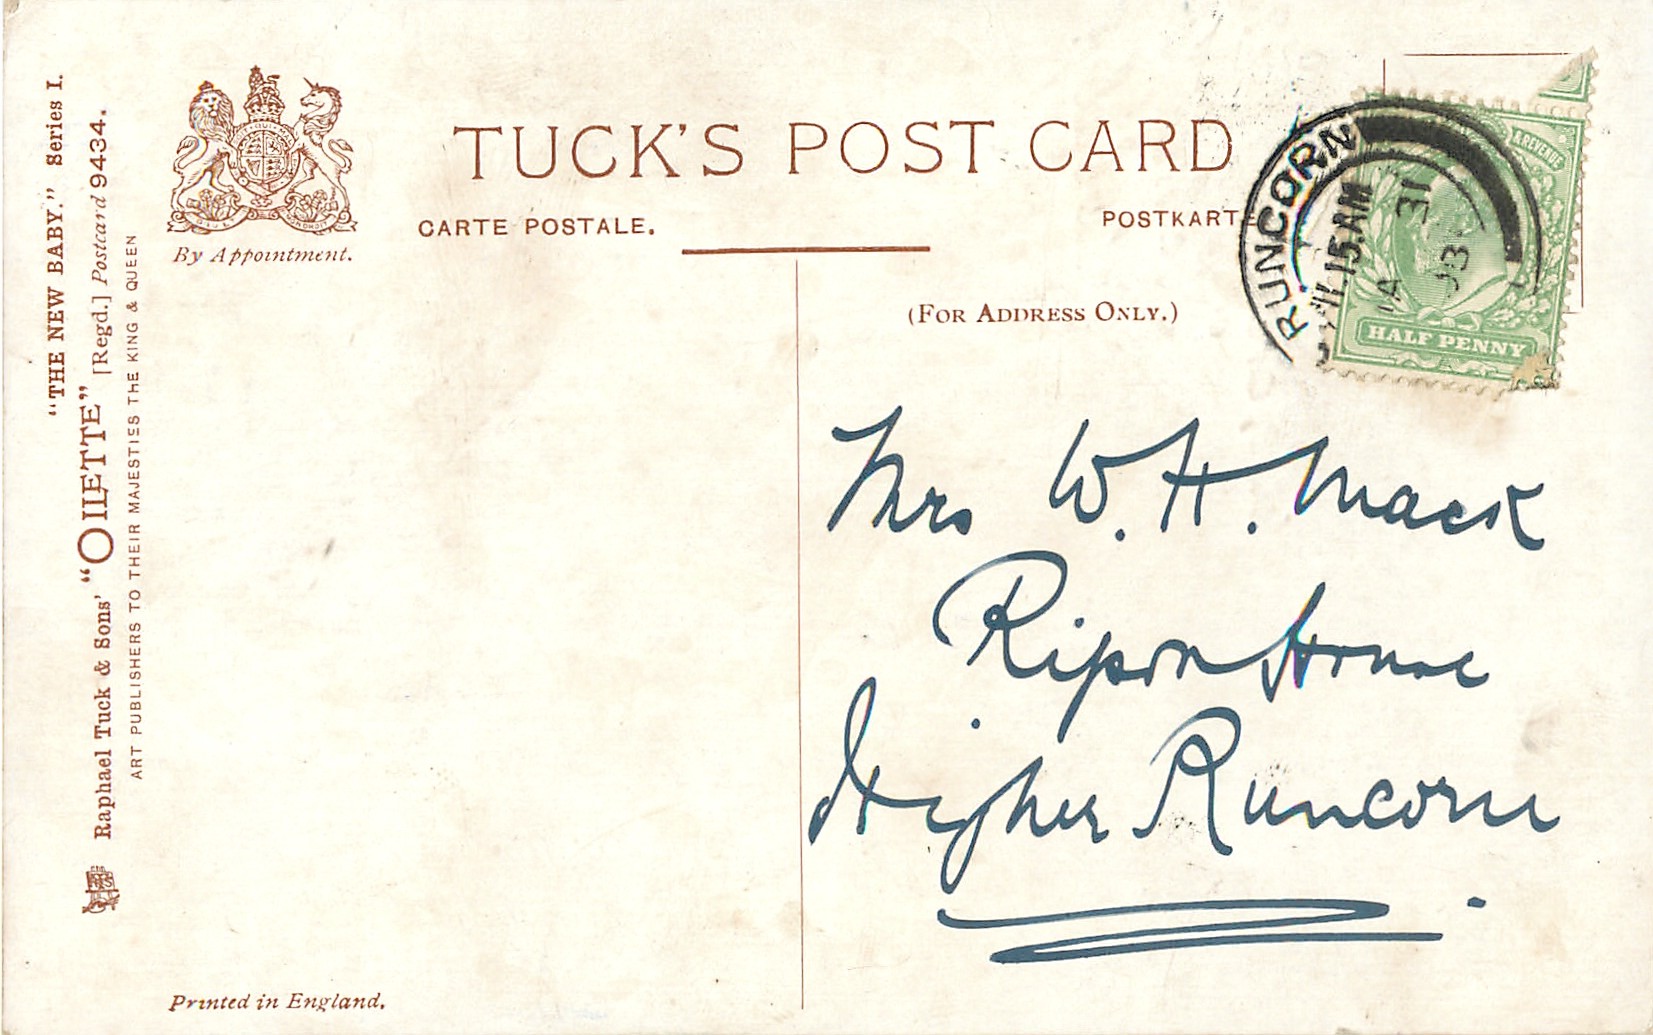 "THE NEW BABY." Series I.
Raphael Tuck & Sons' "OILETTE" [Regd.] Postcard 9434.
ART PUBLISHERS TO THEIR MAJESTIES THE KING & QUEEN
By Appointment.
TUCK'S POST CARD
CARTE POSTALE.
POSTKARTE
(FOR ADDRESS ONLY.)
RUNCORN
11.15 AM
31
HALF PENNY
& REVENUE
Mrs W. H. Mack
Ripon House
Higher Runcorn
Printed in England.